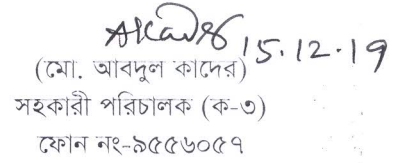 15.12.19
(মো. আবদুল কাদের)
সহকারী পরিচালক (ক-৩)
ফোন নং-৯৫৫৬০৫৭